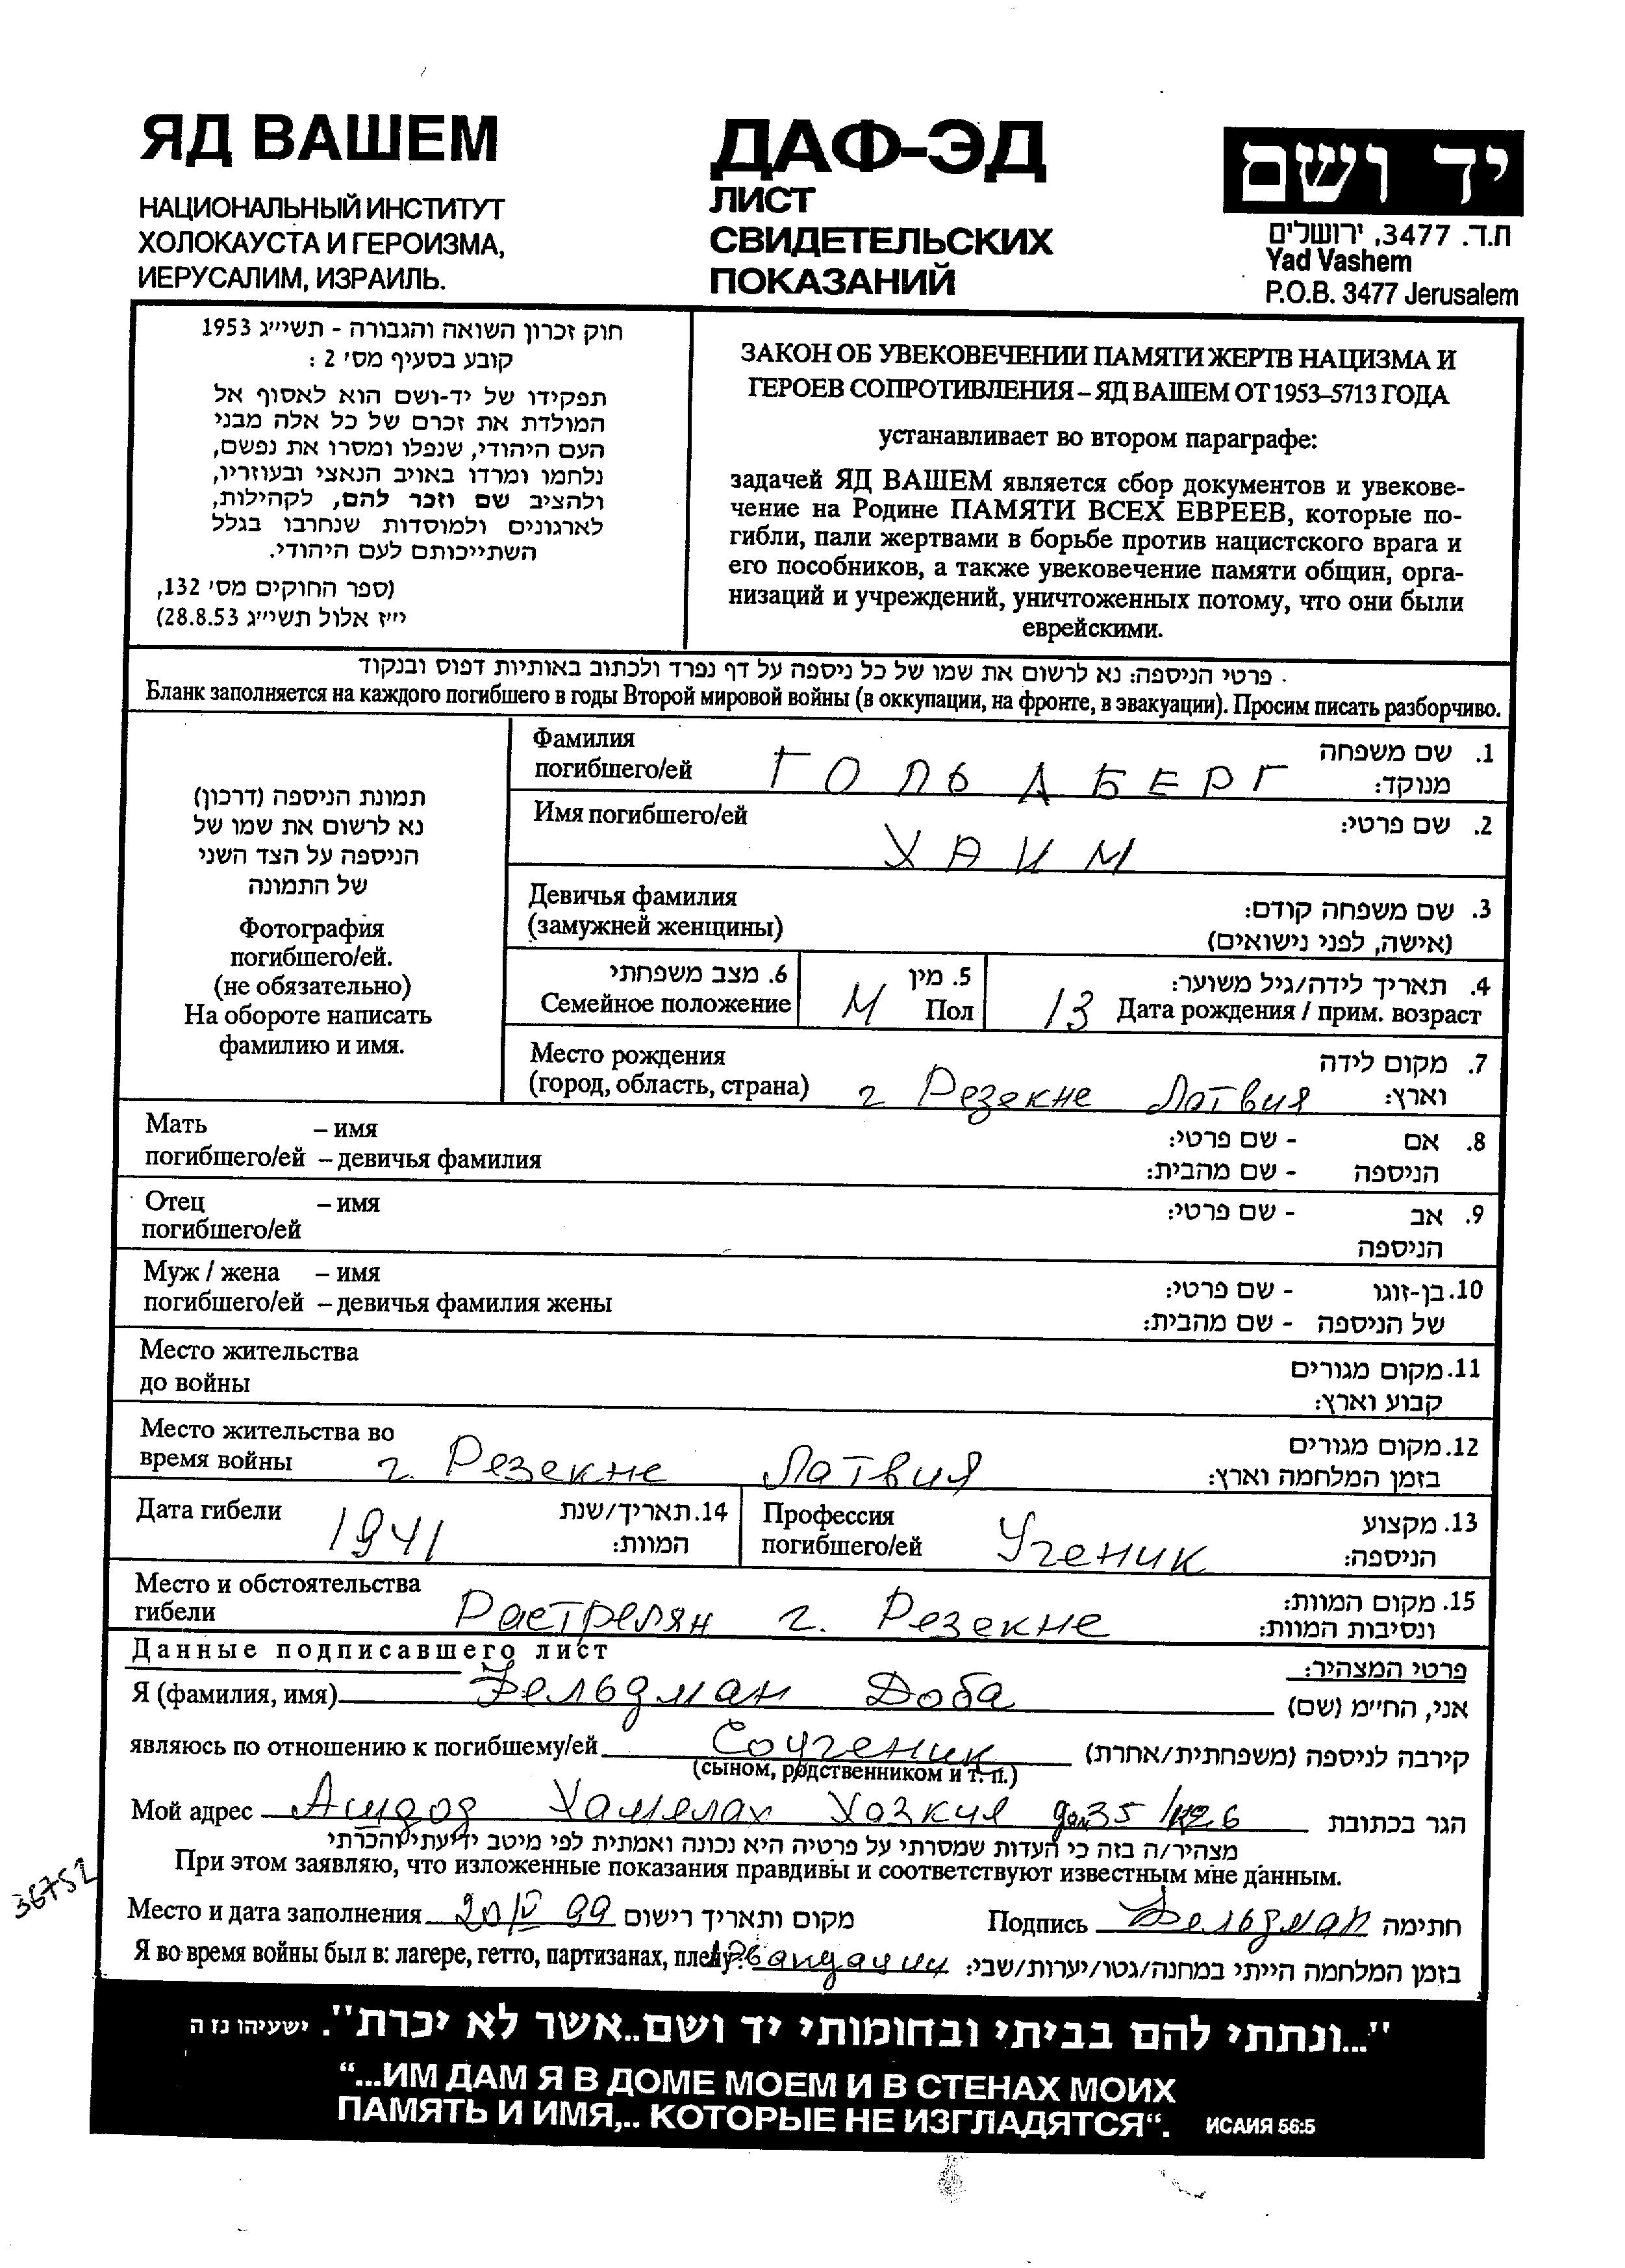 ЯД ВАШЕМ
НАЦИОНАЛЬНЫЙ ИНСТИТУТ
ХОЛОКАУСТА И ГЕРОИЗМА,
ИЕРУСАЛИМ, ИЗРАИЛЬ.
ДАФ-ЭД
ЛИСТ
СВИДЕТЕЛЬСКИХ
ПОКАЗАНИЙ
יד ושם
ת.ד. 3477, ירושלים
Yad Vashem
P.O.B. 3477 Jerusalem
חוק זכרון השואה והגבורה - תשי״ג 1953
קובע בסעיף מס׳ 2 :
תפקידו של יד-ושם הוא לאסוף אל
המולדת את זכרם של כל אלה מבני
העם היהודי, שנפלו ומסרו את נפשם,
נלחמו ומרדו באויב הנאצי ובעוזריו,
ולהציב שם וזכר להם, לקהילות,
לארגונים ולמוסדות שנחרבו בגלל
השתייכותם לעם היהודי.
(ספר החוקים מס׳ 132,
י״ז אלול תשי״ג 28.8.53)
ЗАКОН ОБ УВЕКОВЕЧЕНИИ ПАМЯТИ ЖЕРТВ НАЦИЗМА И
ГЕРОЕВ СОПРОТИВЛЕНИЯ – ЯД ВАШЕМ ОТ 1953–5713 ГОДА
устанавливает во втором параграфе:
задачей ЯД ВАШЕМ является сбор документов и увекове-
чение на Родине ПАМЯТИ ВСЕХ ЕВРЕЕВ, которые по-
гибли, пали жертвами в борьбе против нацистского врага и
его пособников, а также увековечение памяти общин, орга-
низаций и учреждений, уничтоженных потому, что они были
еврейскими.
פרטי הניספה: נא לרשום את שמו של כל ניספה על דף נפרד ולכתוב באותיות דפוס ובנקוד
Бланк заполняется на каждого погибшего в годы Второй мировой войны (в оккупации, на фронте, в эвакуации). Просим писать разборчиво.
תמונת הניספה (דרכון)
נא לרשום את שמו של
הניספה על הצד השני
של התמונה
Фотография
погибшего/ей.
(не обязательно)
На обороте написать
фамилию и имя.
Фамилия 1. שם משפחה
погибшего/ей ГОЛЬДБЕРГ מנוקד:
Имя погибшего/ей 2. שם פרטי:
ХАИМ
Девичья фамилия 3. שם משפחה קודם:
(замужней женщины) (אישה, לפני נישואים)
6. מצב משפחתי 5. מין 4. תאריך לידה/גיל משוער:
Семейное положение М Пол 13 Дата рождения / прим. возраст
Место рождения 7. מקום לידה
(город, область, страна) г Резекне Латвия וארץ:
Мать – имя 8. אם - שם פרטי:
погибшего/ей – девичья фамилия הניספה - שם מהבית:
Отец – имя 9. אב - שם פרטי:
погибшего/ей הניספה
Муж / жена – имя 10. בן-זוגו - שם פרטי:
погибшего/ей – девичья фамилия жены של הניספה - שם מהבית:
Место жительства 11. מקום מגורים
до войны קבוע וארץ:
Место жительства во 12. מקום מגורים
время войны г. Резекне Латвия בזמן המלחמה וארץ:
Дата гибели 14. תאריך/שנת Профессия 13. מקצוע
1941 המוות: погибшего/ей Ученик הניספה:
Место и обстоятельства 15. מקום המוות:
гибели Растрелян г. Резекне ונסיבות המוות:
Данные подписавшего лист פרטי המצהיר:
Я (фамилия, имя) Фельдман Доба אני, הח״מ (שם)
являюсь по отношению к погибшему/ей Соученик קירבה לניספה (משפחתית/אחרת)
(сыном, родственником и т. п.)
Мой адрес Ашдод Хамелах Хазкия дом 35 /кв 26 הגר בכתובת
מצהיר/ה בזה כי העדות שמסרתי על פרטיה היא נכונה ואמתית לפי מיטב ידיעתי והכרתי
При этом заявляю, что изложенные показания правдивы и соответствуют известным мне данным.
36752
Место и дата заполнения 20/IV 99 מקום ותאריך רישום Подпись Фельдман חתימה
Я во время войны был в: лагере, гетто, партизанах, плену? Эвакуации בזמן המלחמה הייתי במחנה/גטו/יערות/שבי:
"...ונתתי להם בביתי ובחומותי יד ושם..אשר לא יכרת". ישעיהו נז ה
“...ИМ ДАМ Я В ДОМЕ МОЕМ И В СТЕНАХ МОИХ
ПАМЯТЬ И ИМЯ,.. КОТОРЫЕ НЕ ИЗГЛАДЯТСЯ“. ИСАИЯ 56:5